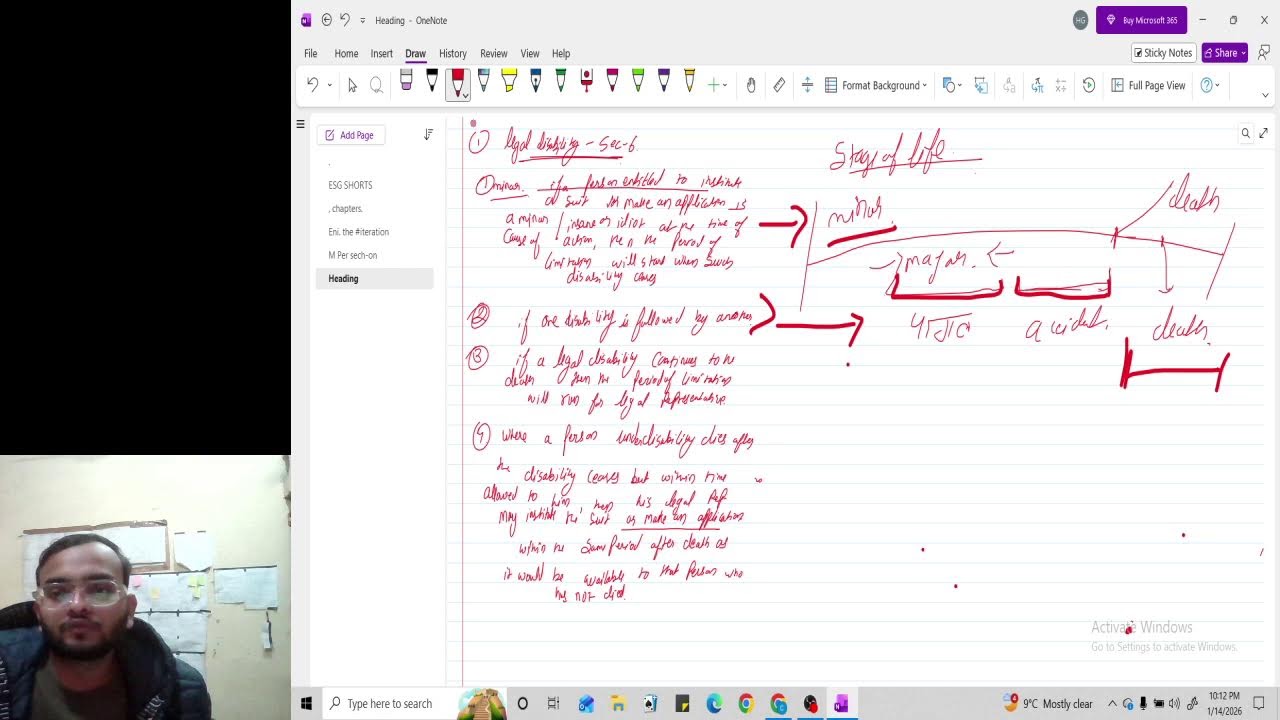 Heading - OneNote
HG
Buy Microsoft 365
File Home Insert Draw History Review View Help
Sticky Notes
Share
Format Background
Full Page View
Add Page
.
ESG SHORTS
, chapters.
Eni. the #iteration
M Per sech-on
Heading
① legal disability - Sec-6.
① minor. if a person entitled to institute
a suit or make an application is
a minor / insane or idiot at the time of
cause of action, then the period of
limitation will start when such
disability ceases
② if one disability is followed by another
③ if a legal disability continues to the
death then the period of limitation
will run for legal representative.
④ where a person under disability dies after
the disability ceases but within time
allowed to him, then his legal rep
may institute the suit or make an application
within the same period after death as
it would be available to that person who
has not died.
Stage of life.
minor.
death
major.
accident.
death.
Activate Windows
Go to Settings to activate Windows.
Type here to search
9°C Mostly clear
10:12 PM
1/14/2026